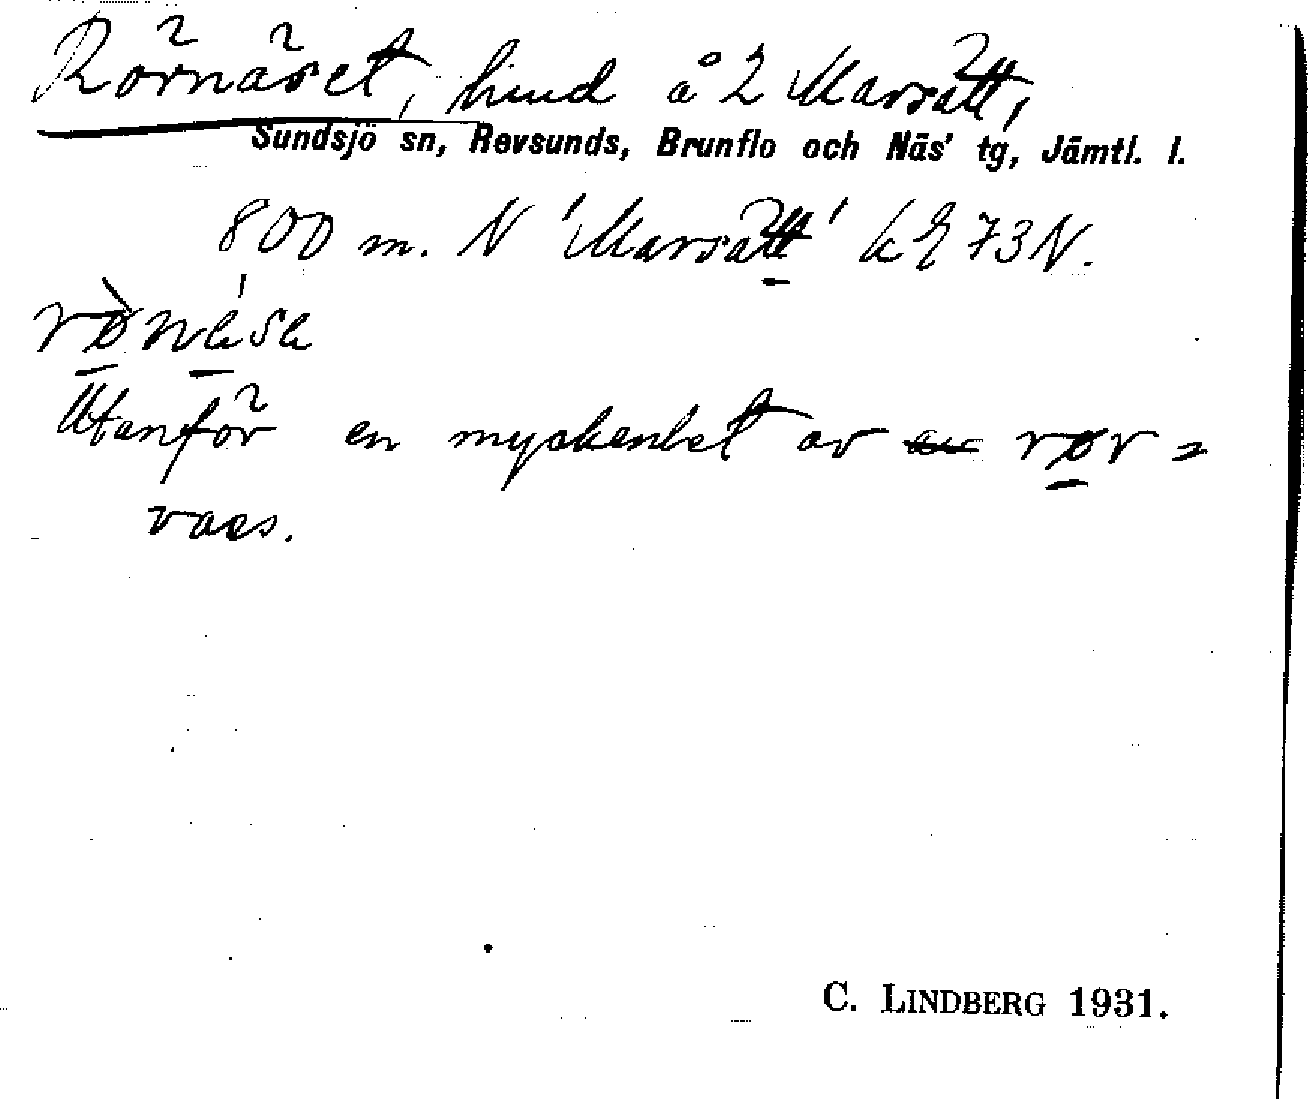 Rörnäset, hmd å 2 Marsätt,
Sundsjö sn, Revsunds, Brunflo och Näs' tg, Jämtl. l.
800 m. N 'Marsätt' k 73 N.
Utanför en myckenhet av rør=
vass.
C. LINDBERG 1931.